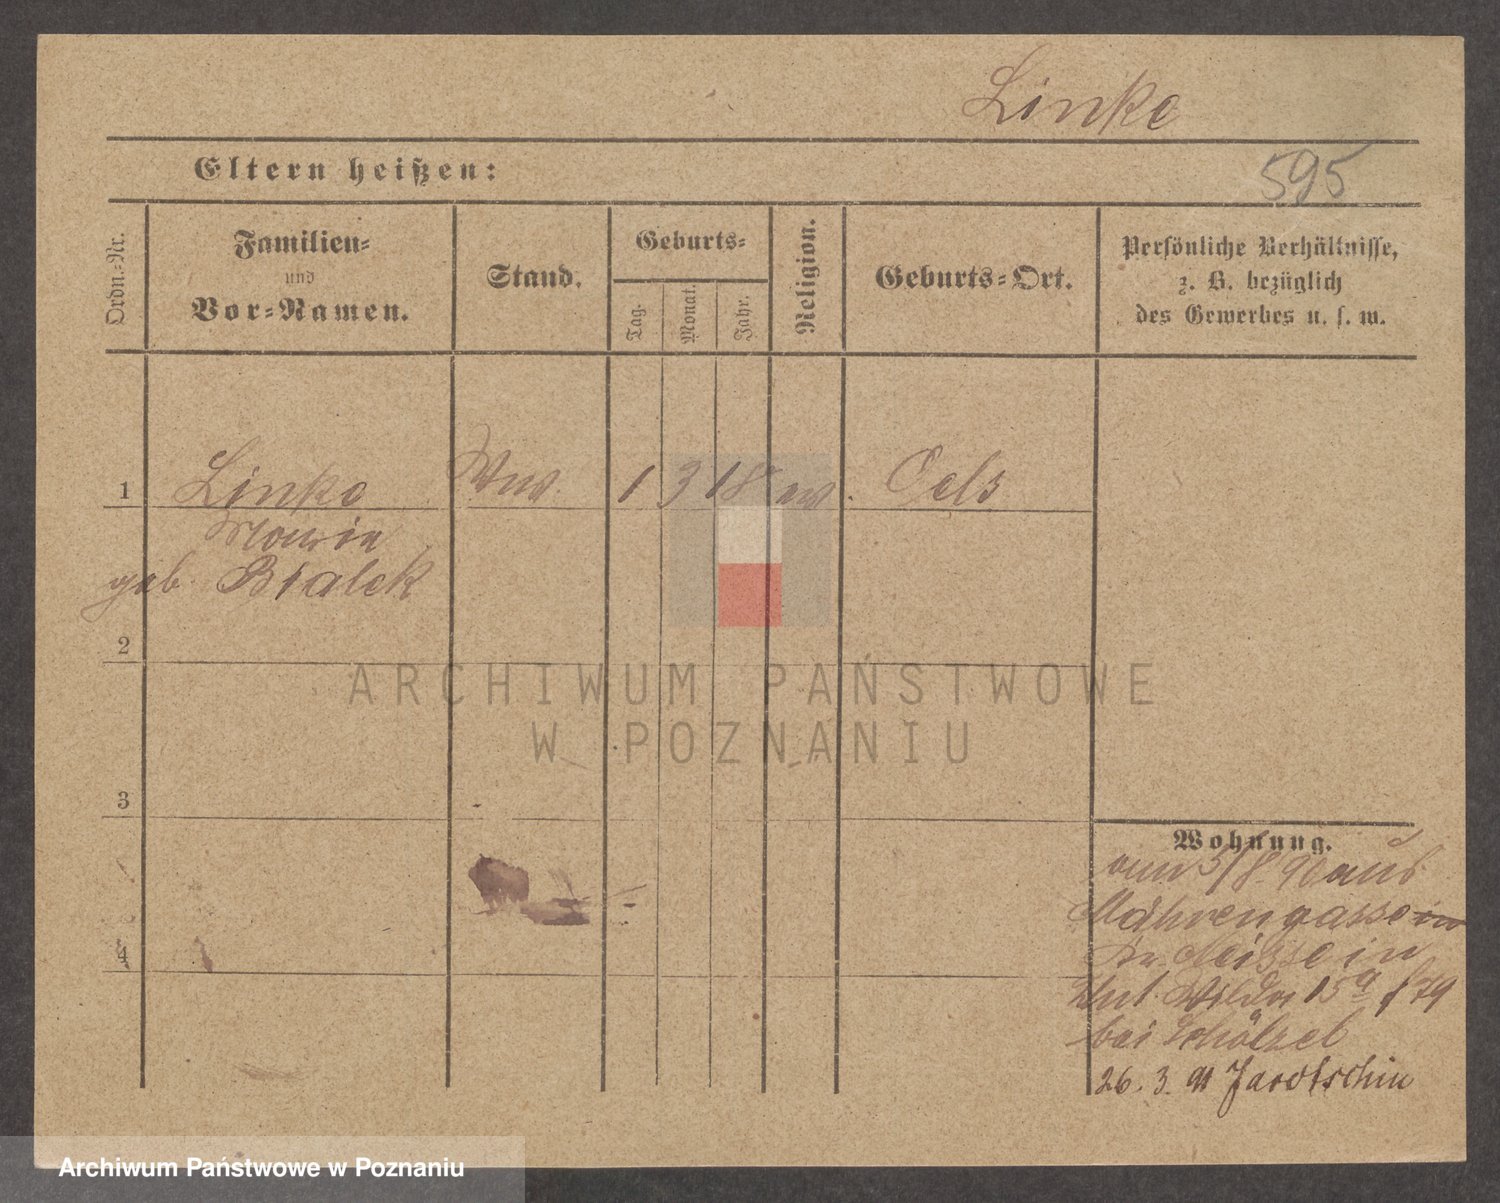 Linke
Eltern heißen:
595
Ordn.-Nr.
Familien-
und
Vor-Namen.
Stand.
Geburts-
Tag.
Monat.
Jahr.
Religion.
Geburts-Ort.
Persönliche Verhältnisse,
z. B. bezüglich
des Gewerbes u. s. w.
1 Linke Ww. 1 3 18 ev. Oels
Marie
geb. Bialek
2
3
4
Wohnung.
am 5/8 90 aus
Mährengasse in
Kr. Neisse in
Unt. Wilda 15a
bei Schölzel
26. 3. 91 Jarotschin
ARCHIWUM PAŃSTWOWE
W POZNANIU
Archiwum Państwowe w Poznaniu